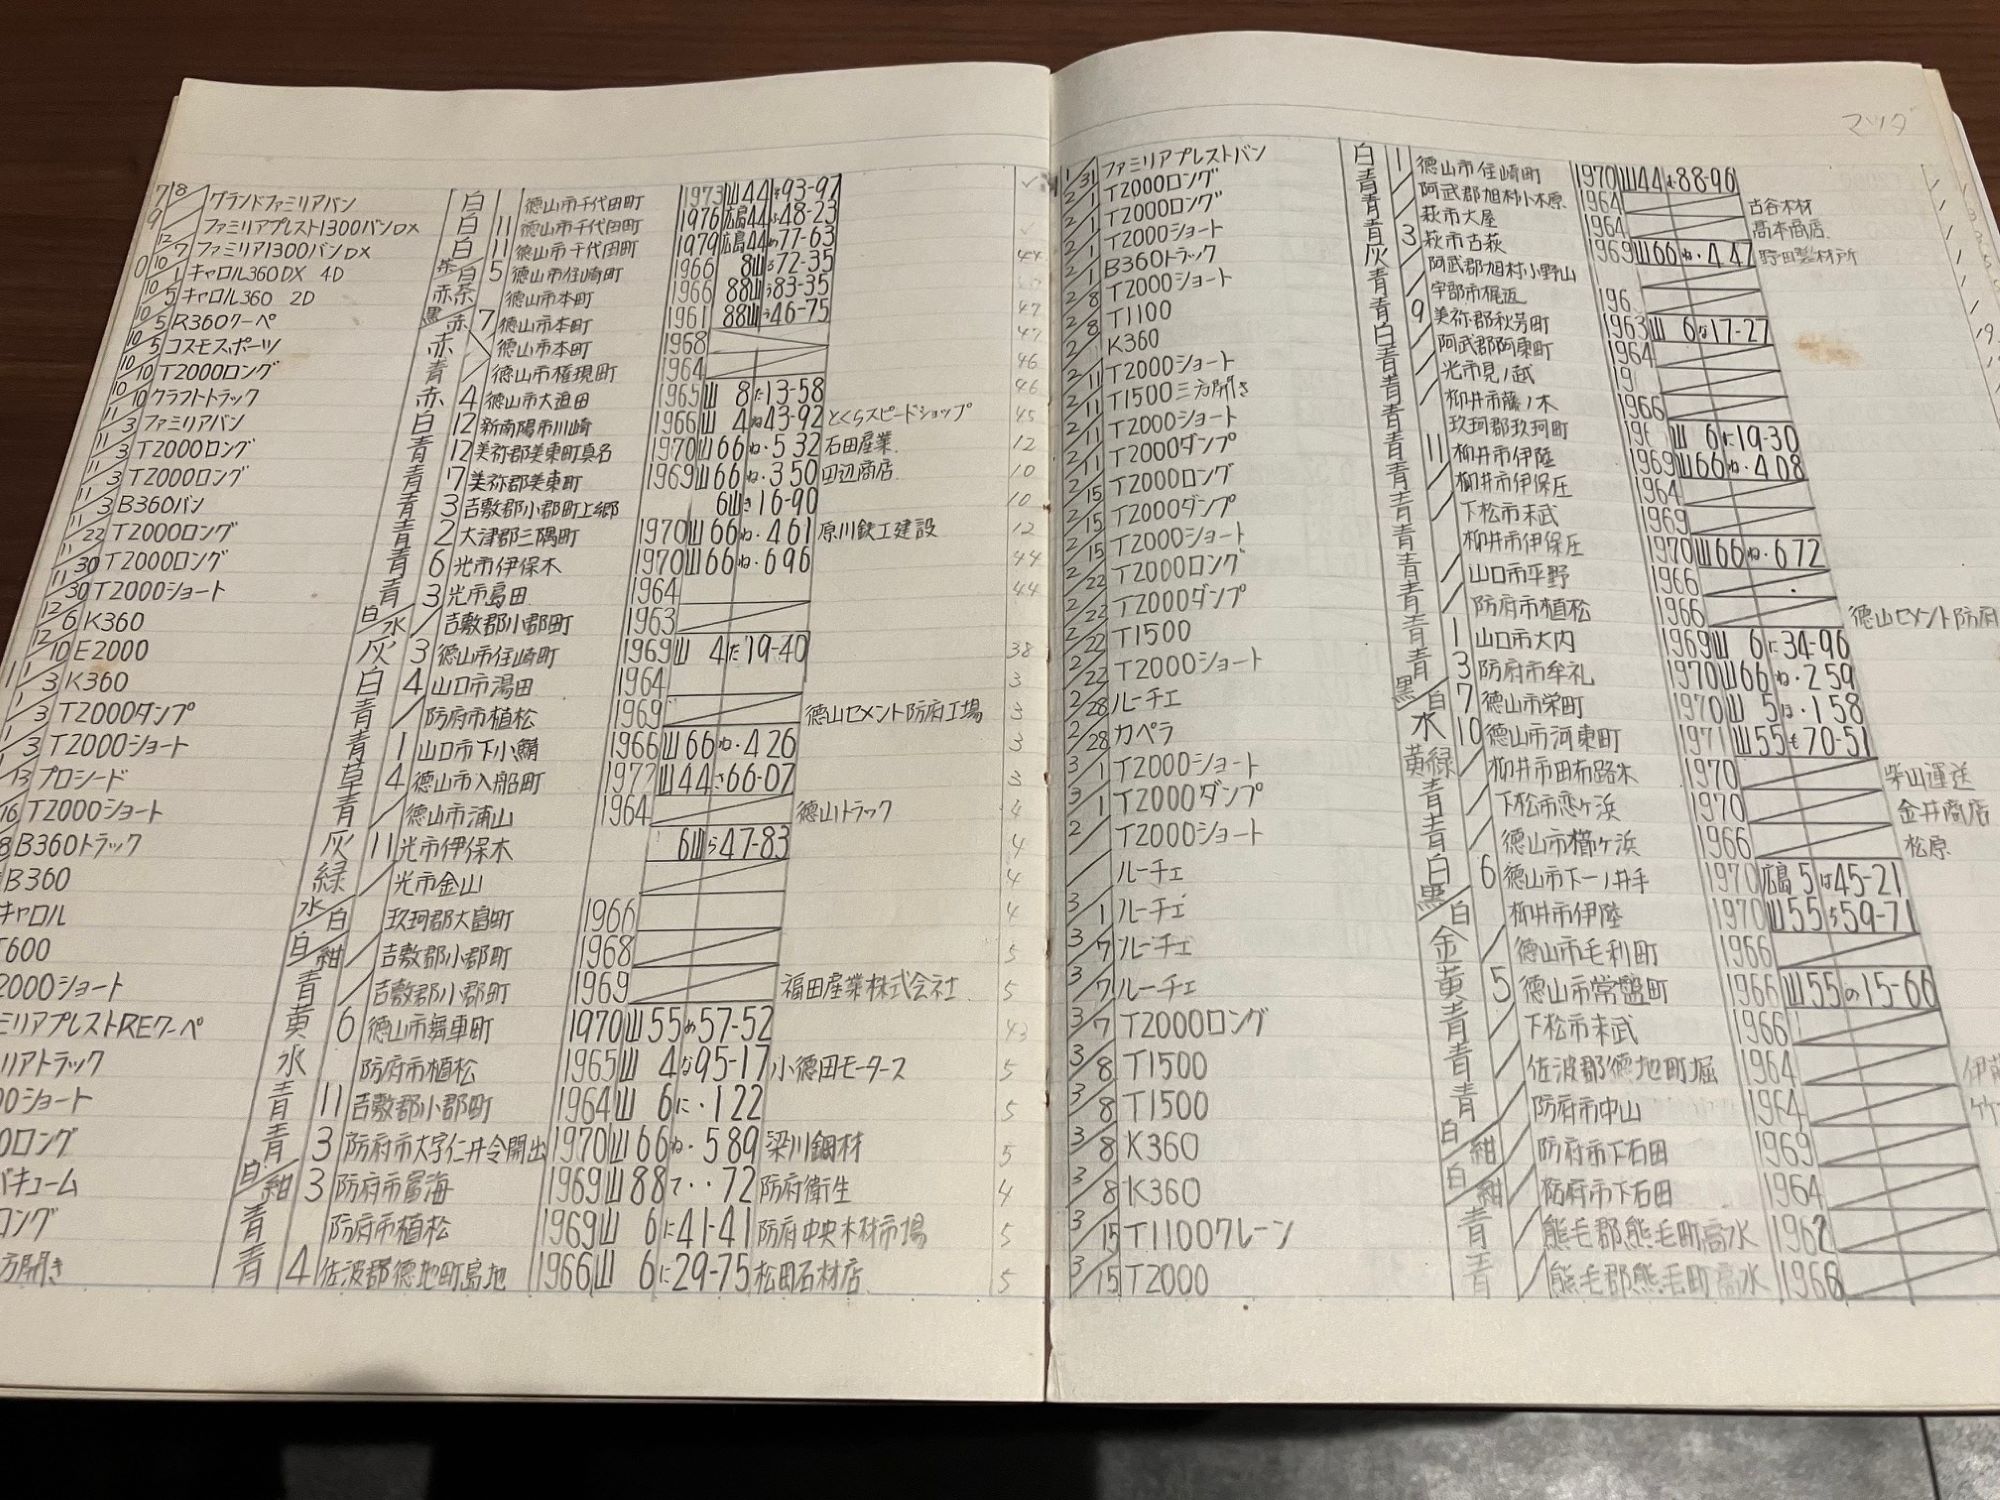 7/8 グランドファミリアバン 白 徳山市千代田町 1973 山44 93-97
9/ ファミリアプレスト1300バンDX 白 11 徳山市千代田町 1976 広島44 48-23
12/7 ファミリア1300バンDX 白 11 徳山市千代田町 1979 広島44 77-63
10/1 キャロル360DX 4D 白 5 徳山市住崎町 1966 8山 72-35
10/5 キャロル360 2D 赤 茶 徳山市本町 1966 88山 83-35
10/5 R360クーペ 黒/赤 7 徳山市本町 1961 88山 46-75
10/5 コスモスポーツ 赤 徳山市本町 1968
10/10 T2000ロング 青 / 徳山市権現町 1964
10/10 クラフトトラック 赤 4 徳山市大迫田 1965 山 8 た 13-58
11/3 ファミリアバン 白 12 新南陽市川崎 1966 山 4 ね 43-92 とくらスピードショップ 45
11/3 T2000ロング 青 12 美祢郡美東町真名 1970 山66 ね・532 石田産業 12
11/3 T2000ロング 青 7 美祢郡美東町 1969 山66 ね・350 田辺商店 10
11/3 B360バン 青 3 吉敷郡小郡町上郷 6山 き 16-90 10
11/22 T2000ロング 青 2 大津郡三隅町 1970 山66 ね・461 原川鉄工建設 12
11/30 T2000ロング 青 6 光市伊保木 1970 山66 ね・696 44
11/30 T2000ショート 青 3 光市島田 1964 44
12/6 K360 白/水 / 吉敷郡小郡町 1963
12/10 E2000 灰 3 徳山市住崎町 1969 山 4 た 19-40 38
1/3 K360 白 4 山口市湯田 1964 3
1/3 T2000ダンプ 青 / 防府市植松 1969 徳山セメント防府工場 3
1/3 T2000ショート 青 1 山口市下小鯖 1966 山66 ね・426 3
1/13 プロシード 草 4 徳山市入船町 1972 山44 さ 66-07 3
16 T2000ショート 青 / 徳山市浦山 1964 徳山トラック 4
8 B360トラック 灰 11 光市伊保木 6山 ら 47-83 4
B360 緑 / 光市金山 4
キャロル 水/白 玖珂郡大畠町 1966 4
T600 白/紺 / 吉敷郡小郡町 1968 5
2000ショート 青 / 吉敷郡小郡町 1969 福田産業株式会社 5
ミリアプレストREクーペ 黄 6 徳山市舞車町 1970 山55 め 57-52 43
リアトラック 水 防府市植松 1965 山 4 な 95-17 小徳田モータース 5
00ショート 青 11 吉敷郡小郡町 1964 山 6 に・122 5
0ロング 青 3 防府市大字仁井令開出 1970 山66 ね・589 梁川鋼材 5
バキューム 白/紺 3 防府市富海 1969 山88 て・・72 防府衛生 4
ロング 青 防府市植松 1969 山 6 に 41-41 防府中央木材市場 5
方開き 青 4 佐波郡徳地町島地 1966 山 6 に 29-75 松田石材店 5
マツダ
1/31 ファミリアプレストバン 白 1 徳山市住崎町 1970 山44 88-96
2/1 T2000ロング 青 / 阿武郡旭村小木原 1964 古谷木材
2/1 T2000ロング 青 / 萩市大屋 1964 高本商店
2/1 T2000ショート 青 3 萩市古萩 1969 山66 ね・447 野田製材所
2/1 B360トラック 灰 / 阿武郡旭村小野山
2/8 T2000ショート 青 / 宇部市梶返 196
2/8 T1100 青 9 美祢郡秋芳町 1963 山 6 な 17-27
2/8 K360 白 / 阿武郡阿東町 1964
2/11 T2000ショート 青 / 光市見ノ越 19
2/11 T1500三方開き 青 / 柳井市藤ノ木 1966
2/11 T2000ショート 青 玖珂郡玖珂町 196 山 6 に 19-30
2/11 T2000ダンプ 青 11 柳井市伊陸 1969 山66 ね・408
2/15 T2000ロング 青 / 柳井市伊保庄 1964
2/15 T2000ダンプ 青 / 下松市末武 1969
2/15 T2000ショート 青 柳井市伊保庄 1970 山66 ね・672
2/22 T2000ロング 青 / 山口市平野 1966
2/22 T2000ダンプ 青 / 防府市植松 1966 徳山セメント防府
2/22 T1500 青 1 山口市大内 1969 山 6 に 34-96
2/22 T2000ショート 青 3 防府市牟礼 1970 山66 ね・259
2/28 ルーチェ 黒/白 7 徳山市栄町 1970 山 5 は・158
2/28 カペラ 水 10 徳山市河東町 1971 山55 も 70-51
3/1 T2000ショート 黄緑 / 柳井市田布路木 1970 柴山運送
3/1 T2000ダンプ 青 / 下松市恋ヶ浜 1970 金井商店
2/ T2000ショート 青 / 徳山市櫛ヶ浜 1966 松原
/ ルーチェ 白 6 徳山市下一ノ井手 1970 広島 5 は 45-21
3/1 ルーチェ 黒/白 柳井市伊陸 1970 山55 ち 59-71
3/7 ルーチェ 金 / 徳山市毛利町 1966
3/7 ルーチェ 黄 5 徳山市常盤町 1966 山55 の 15-66
3/7 T2000ロング 青 / 下松市末武 1966
3/8 T1500 青 / 佐波郡徳地町堀 1964
3/8 T1500 青 / 防府市中山 1964
3/8 K360 白/紺 / 防府市下右田 1969
3/8 K360 白/紺 / 防府市下右田 1964
3/15 T1100クレーン 青 / 熊毛郡熊毛町高水 1962
3/15 T2000 青 / 熊毛郡熊毛町高水 1966